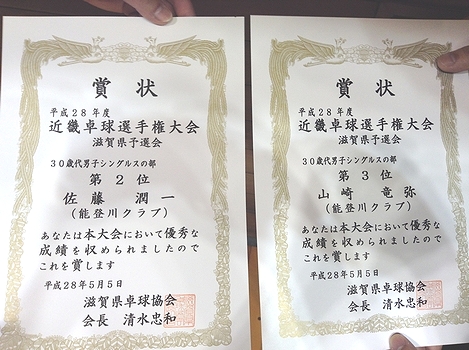 賞状
平成28年度
近畿卓球選手権大会
滋賀県予選会
30歳代男子シングルスの部
第2位
佐藤 潤一
(能登川クラブ)
あなたは本大会において優秀な
成績を収められましたので
これを賞します
平成28年5月5日
滋賀県卓球協会
会長 清水忠和
賞状
平成28年度
近畿卓球選手権大会
滋賀県予選会
30歳代男子シングルスの部
第3位
山崎 竜弥
(能登川クラブ)
あなたは本大会において優秀な
成績を収められましたので
これを賞します
平成28年5月5日
滋賀県卓球協会
会長 清水忠和